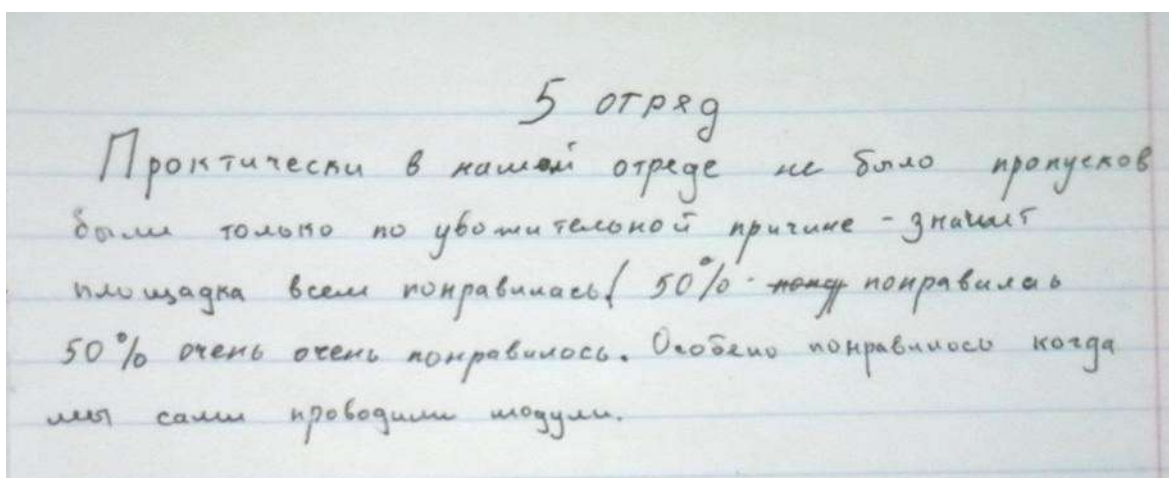 5 отряд
Проктически в нашей отреде не было пропусков
были только по увожительной причине - значит
площадка всем понравилась( 50% - понравилась
50% очень очень понравилось. Особено понравилось когда
мы сами проводили модули.